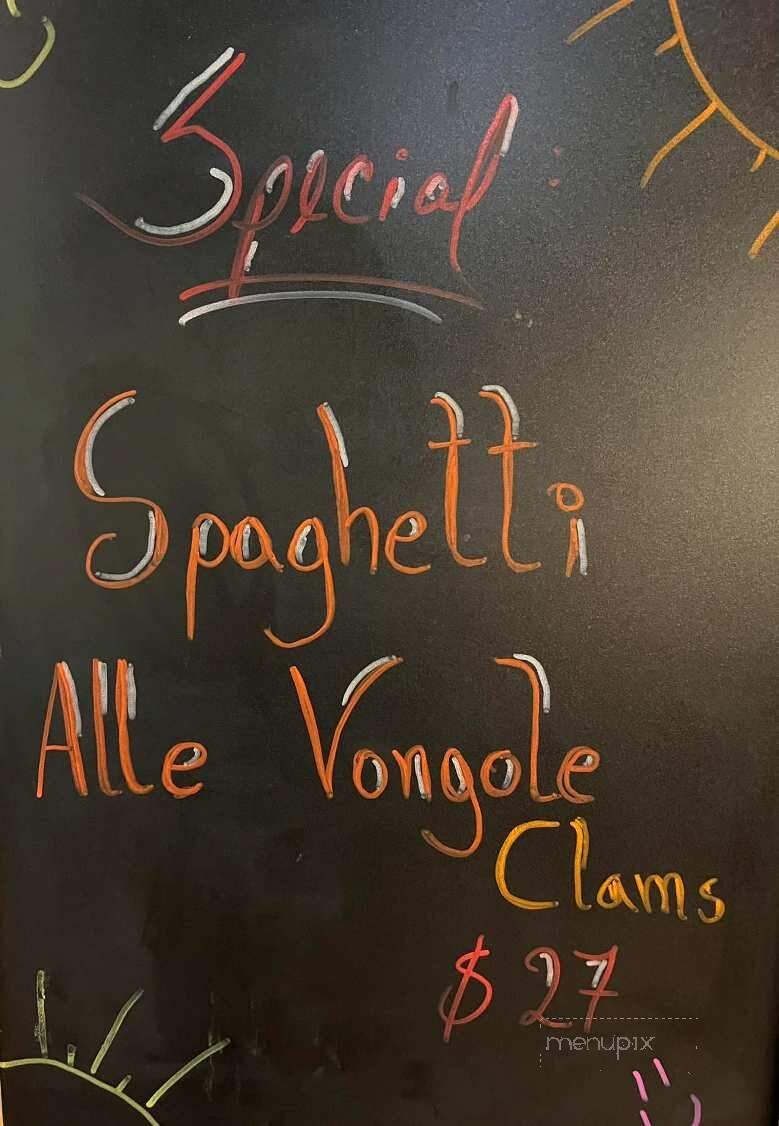 Special :
Spaghetti
Alle Vongole
Clams
$ 27
menupix